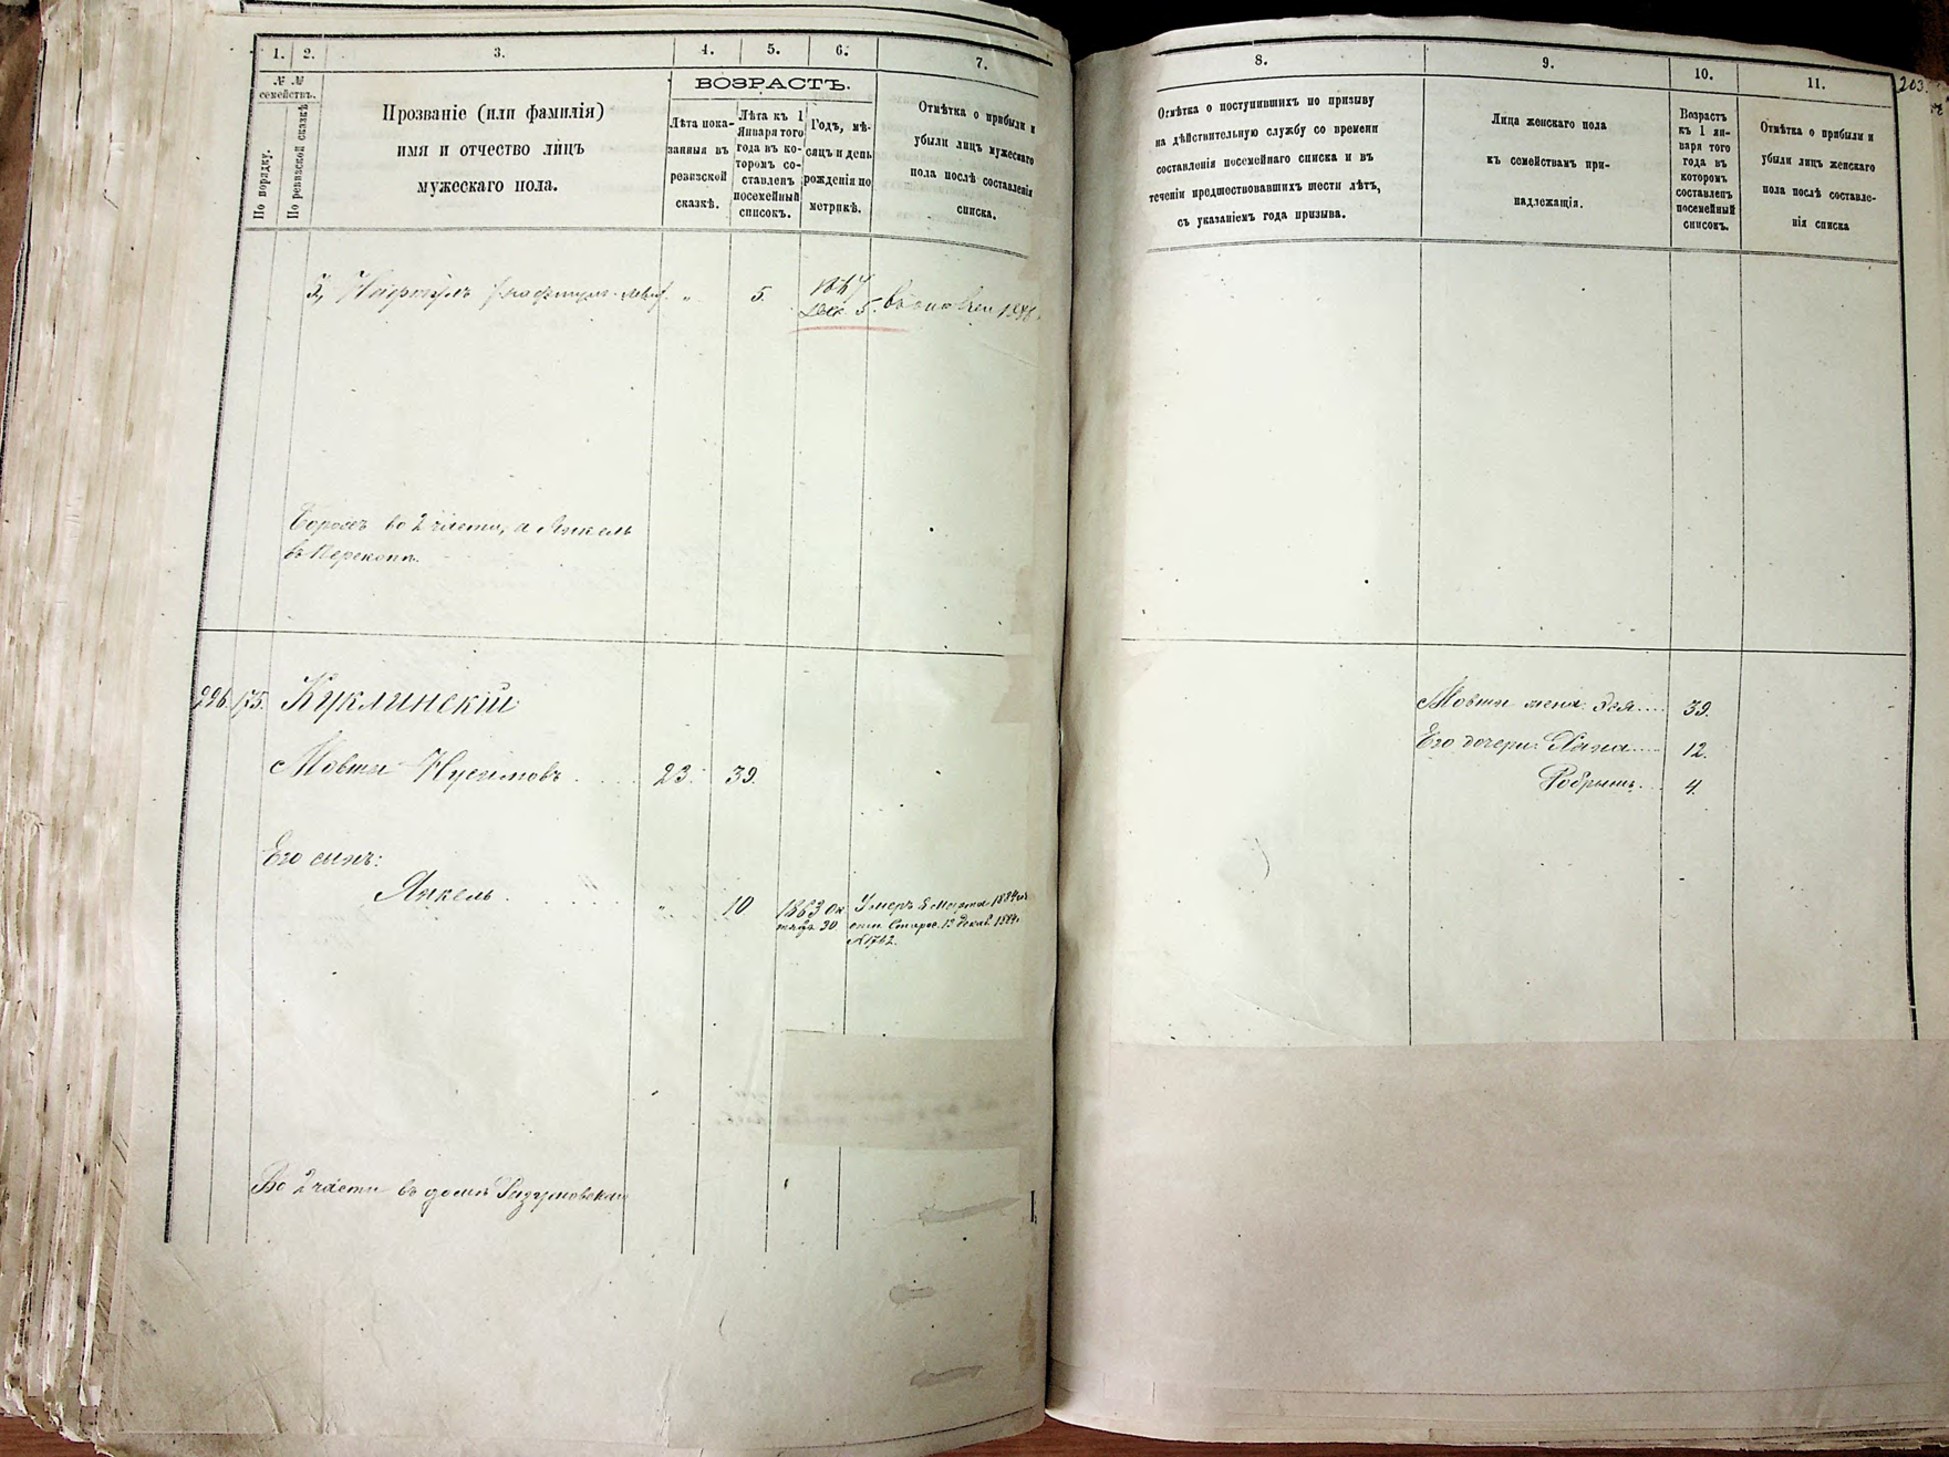 1. 2. 3. 4. 5. 6. 7.
№ №
семействъ.
По порядку.
По ревизской сказкѣ
Прозваніе (или фамилія)
имя и отчество лицъ
мужескаго пола.
ВОЗРАСТЪ.
Лѣта пока-
занныя въ
ревизской
сказкѣ.
Лѣта къ 1
Января того
года въ ко-
торомъ со-
ставленъ
посемейный
списокъ.
Годъ, мѣ-
сяцъ и день
рожденія по
метрикѣ.
Отмѣтка о прибыли и
убыли лицъ мужескаго
пола послѣ составленія
списка.
5. 1867
Дек. 5.
во 2 части, а Янкель
въ Перекопѣ.
226. 175. Куклинскій
Мовша Нусимовъ 23. 39.
Его сынъ:
Янкель. „ 10 1863 Ок
тябр. 30.
Умеръ 8 Марта 1884
13 декаб. 1884
№ 1762.
Во 2 части въ домѣ
8. 9. 10. 11.
203.
Отмѣтка о поступившихъ по призыву
на дѣйствительную службу со времени
составленія посемейнаго списка и въ
теченіи предшествовавшихъ шести лѣтъ,
съ указаніемъ года призыва.
Лица женскаго пола
къ семействамъ при-
надлежащія.
Возрастъ
къ 1 ян-
варя того
года въ
которомъ
составленъ
посемейный
списокъ.
Отмѣтка о прибыли и
убыли лицъ женскаго
пола послѣ составле-
нія списка
Мовши жена: Эся.... 39.
Его дочери: Хана.... 12.
4.